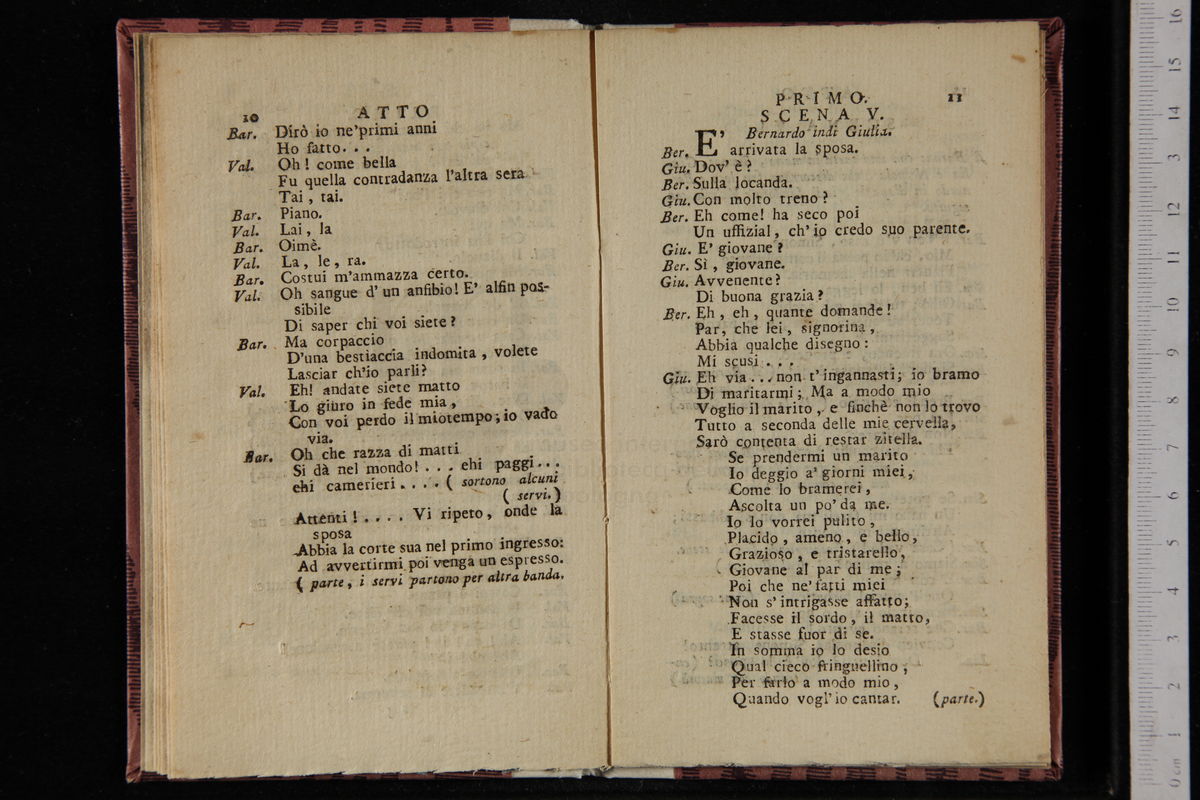 10 ATTO
Bar. Dirò io ne'primi anni
Ho fatto. . .
Val. Oh! come bella
Fu quella contradanza l'altra sera
Tai, tai.
Bar. Piano.
Val. Lai, la
Bar. Oimè.
Val. La, le, ra.
Bar. Costui m'ammazza certo.
Val. Oh sangue d'un anfibio! E' alfin pos-
sibile
Di saper chi voi siete?
Bar. Ma corpaccio
D'una bestiaccia indomita, volete
Lasciar ch'io parli?
Val. Eh! andate siete matto
Lo giuro in fede mia,
Con voi perdo il miotempo; io vado
via.
Bar. Oh che razza di matti
Si dà nel mondo! . . . ehi paggi...
ehi camerieri. . . . ( sortono alcuni
( servi.)
Attenti! . . . . Vi ripeto, onde la
sposa
Abbia la corte sua nel primo ingresso:
Ad avvertirmi poi venga un espresso.
( parte, i servi partono per altra banda.
PRIMO. 11
SCENA V.
Bernardo indi Giulia.
Ber. E' arrivata la sposa.
Giu. Dov' è?
Ber. Sulla locanda.
Giu. Con molto treno?
Ber. Eh come! ha seco poi
Un uffizial, ch'io credo suo parente.
Giu. E' giovane?
Ber. Sì, giovane.
Giu. Avvenente?
Di buona grazia?
Ber. Eh, eh, quante domande!
Par, che lei, signorina,
Abbia qualche disegno:
Mi scusi . . .
Giu. Eh via . . . non t'ingannasti; io bramo
Di maritarmi; Ma a modo mio
Voglio il marito, e finchè non lo trovo
Tutto a seconda delle mie cervella,
Sarò contenta di restar zitella.
Se prendermi un marito
Io deggio a' giorni miei,
Come lo bramerei,
Ascolta un po' da me.
Io lo vorrei pulito,
Placido, ameno, e bello,
Grazioso, e tristarello,
Giovane al par di me;
Poi che ne' fatti miei
Non s'intrigasse affatto;
Facesse il sordo, il matto,
E stasse fuor di se.
In somma io lo desio
Qual cieco fringuellino,
Per farlo a modo mio,
Quando vogl'io cantar. (parte.)
0 cm 1 2 3 4 5 6 7 8 9 10 11 12 13 14 15 16